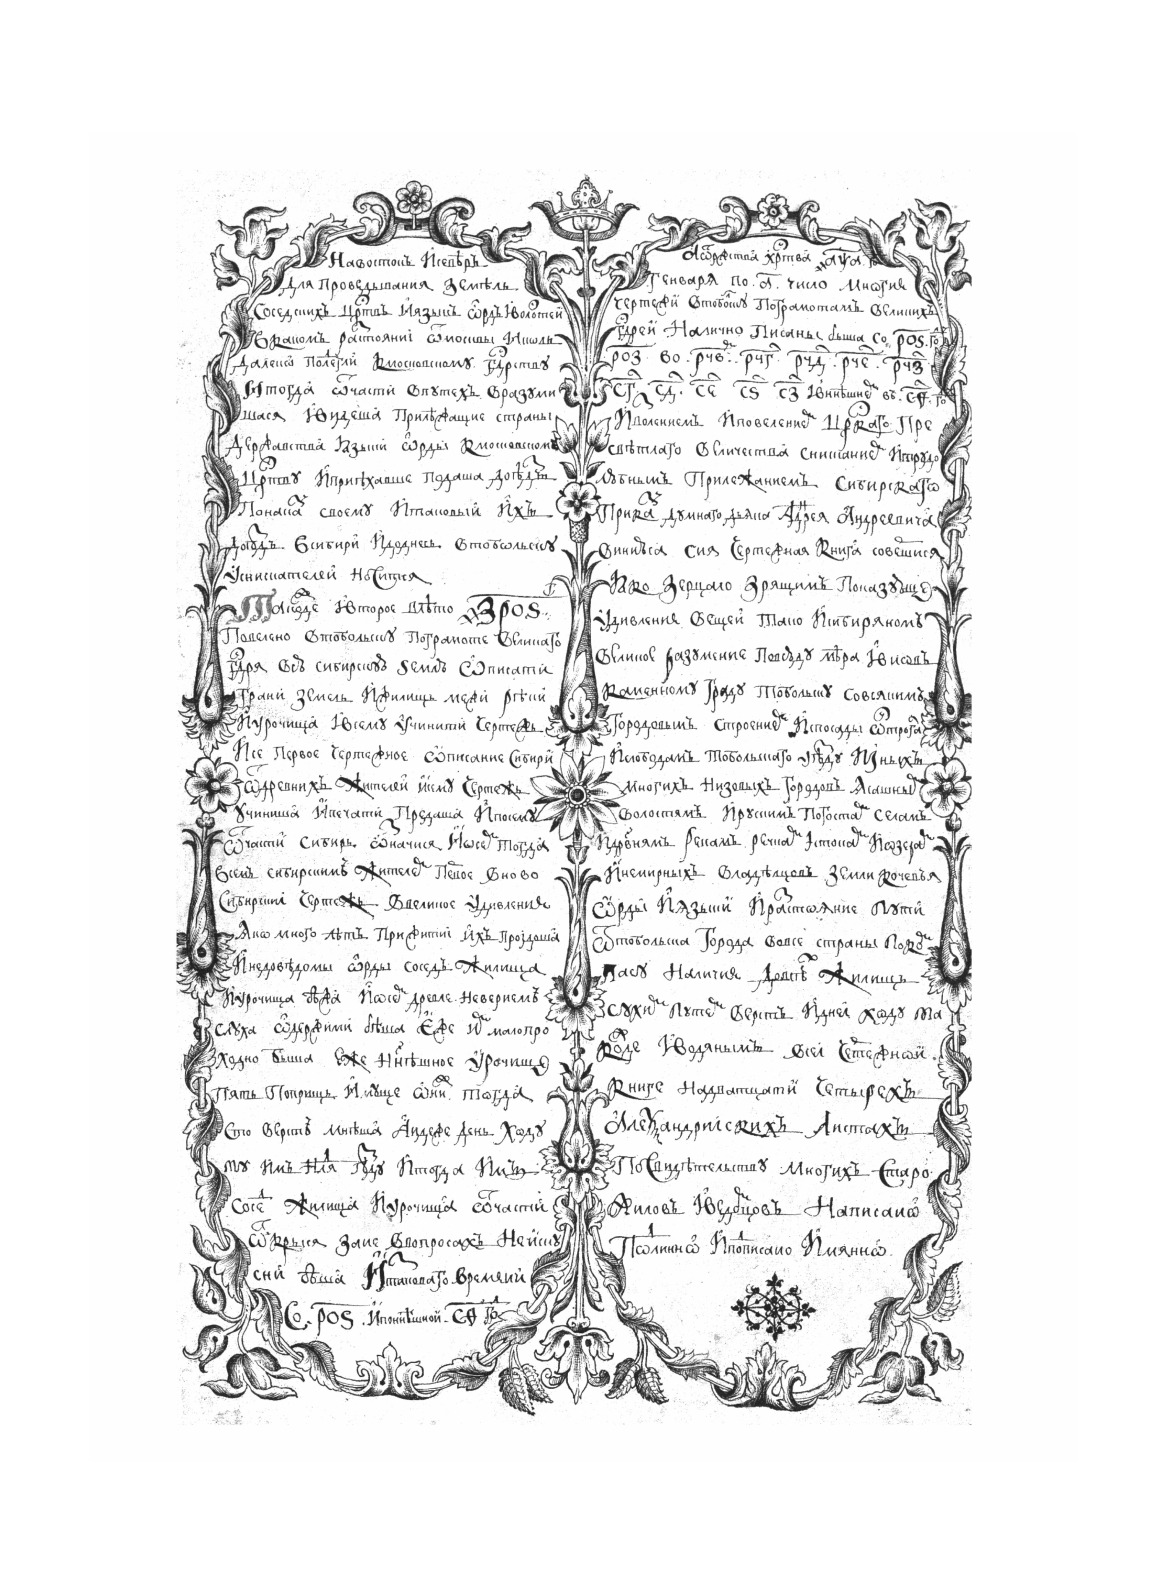 На востокъ и сѣверъ
Для проведывания земель
Соседскихъ црствъ и языкъ ѡрдъ и волостей
в какомъ растоянеи ѿ москвы и коль
далеко полегли к московскому гдрству
и тогда ѿчасти в путехъ вразуми
шася и видеша прилѣжащие страны
державства языки ѡрды к московскомꙋ
црству и приѣхавше подаша доѣзды
по наказꙋ своему и таковый ихъ
доѣздъ в сибири и доднесь в тобольскꙋ
ꙋ списателей носится
Такожде и второе в лѣто ҂зрос
повелено в тобольскꙋ по грамоте великаго
гдря всѣ сибирскꙋю землю ѡписати
грани земель и жилищь межи рѣки
и ꙋрочища и всему ꙋчинити чертежъ
и се первое чертежное ѡписание сибири
ѿ древнихъ жителей и ему чертежъ
ꙋчиниша и печати предаша и по ему
ѿчасти сибирь означися и оже тогда
всемъ сибирскимъ жителем первое вново
сибирский чертежъ в великое ꙋдивление
яко много лѣтъ при житии ихъ проидоша
и неведомы ѡрды соседъ жилища
и ꙋрочища бѣша и оже древле невериемъ
слꙋха ѡдержими бѣша еже и малопро
ходно быша еже нн҃ѣшное ꙋрочище
пять поприщъ и лꙋще ѡни тогда
сто верстъ мнѣша индеже день ходꙋ
мꙋ имъ нля годꙋ и тогда имъ
сосед жилища и ꙋрочища ѿчасти
ѿкрыся зане в вопросахъ не искꙋ
сни бѣша и таковаго времени
Со рос и по нн҃ѣшной сѳ го
А ѿ ржства хртва ҂аѱа го
генваря по а число многия
чертежи в тобольскꙋ по грамотамъ великихъ
гдрей налично писаны быша со рос го
роз во рчв рчг рчд рче рчз
сг сд се сѕ сз и в нынешнем въ сѳ го
изволениемъ и повелением црскаго пре
свѣтлаго величества снисканием и трꙋдо
любнымъ прилежаниемъ сибирскаго
приказꙋ дꙋмнаго дьяка андрея андреевича
виниꙋса сия чертежная книга совершися
яко зерцало зрящимъ показꙋюще
ꙋдивления вещей тако и сибиряномъ
великое разꙋмение повсюдꙋ мѣра и високъ
каменномꙋ градꙋ тобольскꙋ со всякимъ
городовымъ строением и посады ѿ острога
и слободамъ тобольскаго ꙋездꙋ и иныхъ
многихъ низовыхъ городовъ ясашным
волостямъ и рꙋскимъ погостам селамъ
и деревнямъ рекамъ речкам истокам и озерам
и немирныхъ владѣлцовъ земли кочевья
ѡрды и языки и растояние пꙋти
ѿ тобольска города во все страны по кꙋ
пасꙋ наличия довсѣ жилищъ
сꙋхим пꙋтем верстъ и дней ходꙋ та
кожде и водянымъ всей чертежной
книге на дватцати четырехъ
александрийскихъ листахъ
По свидѣтельствꙋ многихъ старо
жиловъ и ведомцовъ написано
полинно и пописано имянно.